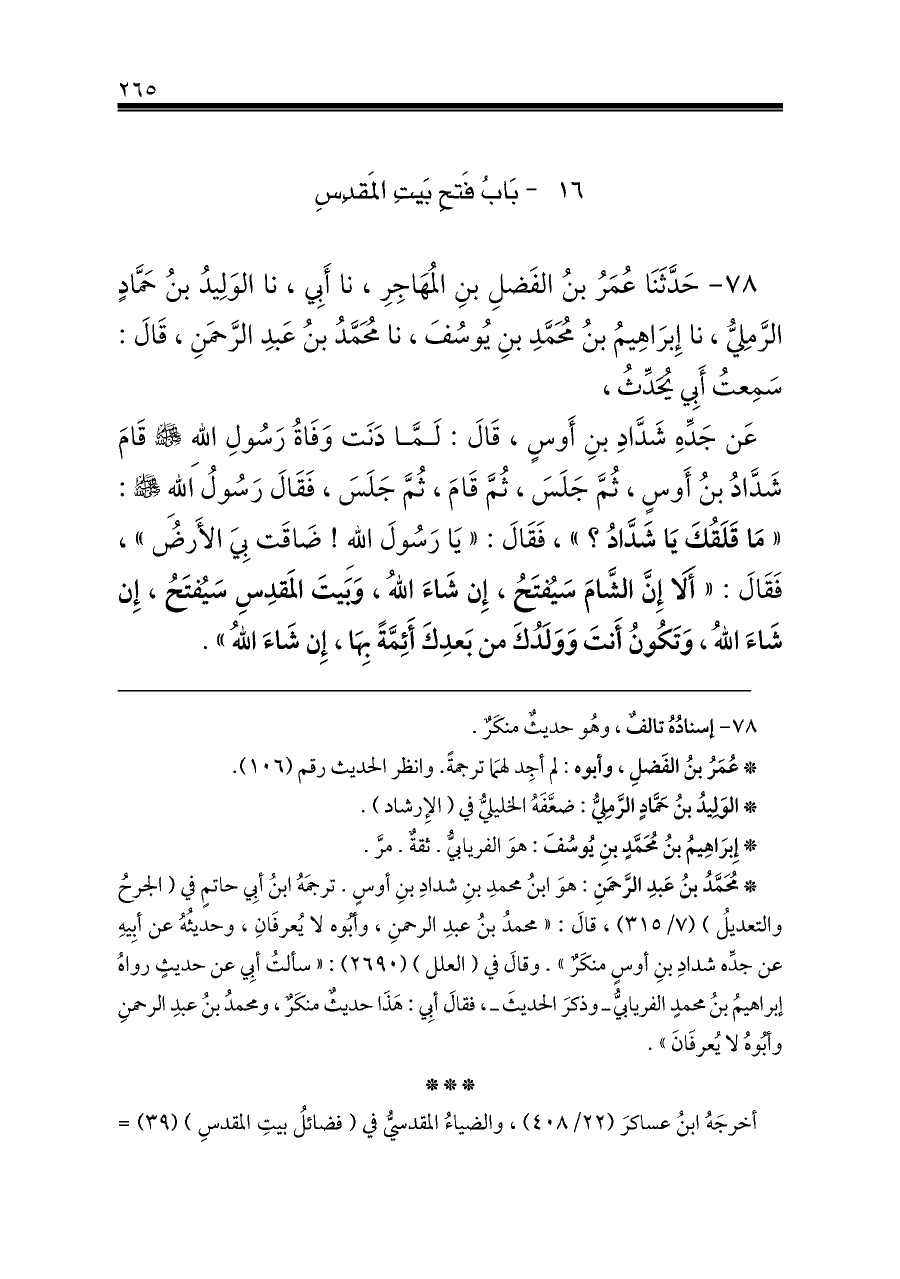 ٢٦٥
١٦ - بَابُ فَتحِ بَيتِ المَقدِسِ
٧٨- حَدَّثَنَا عُمَرُ بنُ الفَضلِ بنِ المُهَاجِرِ ، نا أَبِي ، نا الوَلِيدُ بنُ حَمَّادٍ
الرَّمِليُّ ، نا إِبرَاهِيمُ بنُ مُحَمَّدِ بنِ يُوسُفَ ، نا مُحَمَّدُ بنُ عَبدِ الرَّحمَنِ ، قَالَ :
سَمِعتُ أَبِي يُحَدِّثُ ،
عَن جَدِّهِ شَدَّادِ بنِ أَوسٍ ، قَالَ : لَـمَّـا دَنَت وَفَاةُ رَسُولِ اللهِ ﷺ قَامَ
شَدَّادُ بنُ أَوسٍ ، ثُمَّ جَلَسَ ، ثُمَّ قَامَ ، ثُمَّ جَلَسَ ، فَقَالَ رَسُولُ اللهِ ﷺ :
« مَا قَلَقُكَ يَا شَدَّادُ ؟ » ، فَقَالَ : « يَا رَسُولَ اللهِ ! ضَاقَت بِيَ الأَرضُ » ،
فَقَالَ : « أَلَا إِنَّ الشَّامَ سَيُفتَحُ ، إِن شَاءَ اللهُ ، وَبَيتَ المَقدِسِ سَيُفتَحُ ، إِن
شَاءَ اللهُ ، وَتَكُونُ أَنتَ وَوَلَدُكَ من بَعدِكَ أَئِمَّةً بِهَا ، إِن شَاءَ اللهُ » .
٧٨- إسنادُهُ تالفٌ ، وهُو حديثٌ منكَرٌ .
* عُمَرُ بنُ الفَضلِ ، وأبوه : لم أجِد لهُمَا ترجمةً. وانظر الحديث رقم (١٠٦).
* الوَلِيدُ بنُ حَمَّادٍ الرَّمِليُّ : ضعَّفَهُ الخليليُّ في ( الإرشاد ) .
* إِبرَاهِيمُ بنُ مُحَمَّدِ بنِ يُوسُفَ : هوَ الفريابيُّ . ثقةٌ . مرَّ .
* مُحَمَّدُ بنُ عَبدِ الرَّحمَنِ : هوَ ابنُ محمدِ بنِ شدادِ بنِ أوسٍ . ترجمَهُ ابنُ أبي حاتمٍ في ( الجرحُ
والتعديلُ ) (٧/ ٣١٥) ، قالَ : « محمدُ بنُ عبدِ الرحمنِ ، وأبُوه لا يُعرفَانِ ، وحديثُهُ عن أبِيهِ
عن جدِّه شدادِ بنِ أوسٍ منكَرٌ » . وقالَ في ( العلل ) (٢٦٩٠) : « سألتُ أبي عن حديثٍ رواهُ
إبراهيمُ بنُ محمدٍ الفريابيُّ ـ وذكرَ الحديثَ ـ ، فقالَ أبِي : هَذَا حديثٌ منكَرٌ ، ومحمدُ بنُ عبدِ الرحمنِ
وأبُوهُ لا يُعرفَانَ » .
* * *
أخرجَهُ ابنُ عساكرَ (٢٢/ ٤٠٨) ، والضياءُ المقدسيُّ في ( فضائلُ بيتِ المقدسِ ) (٣٩) =